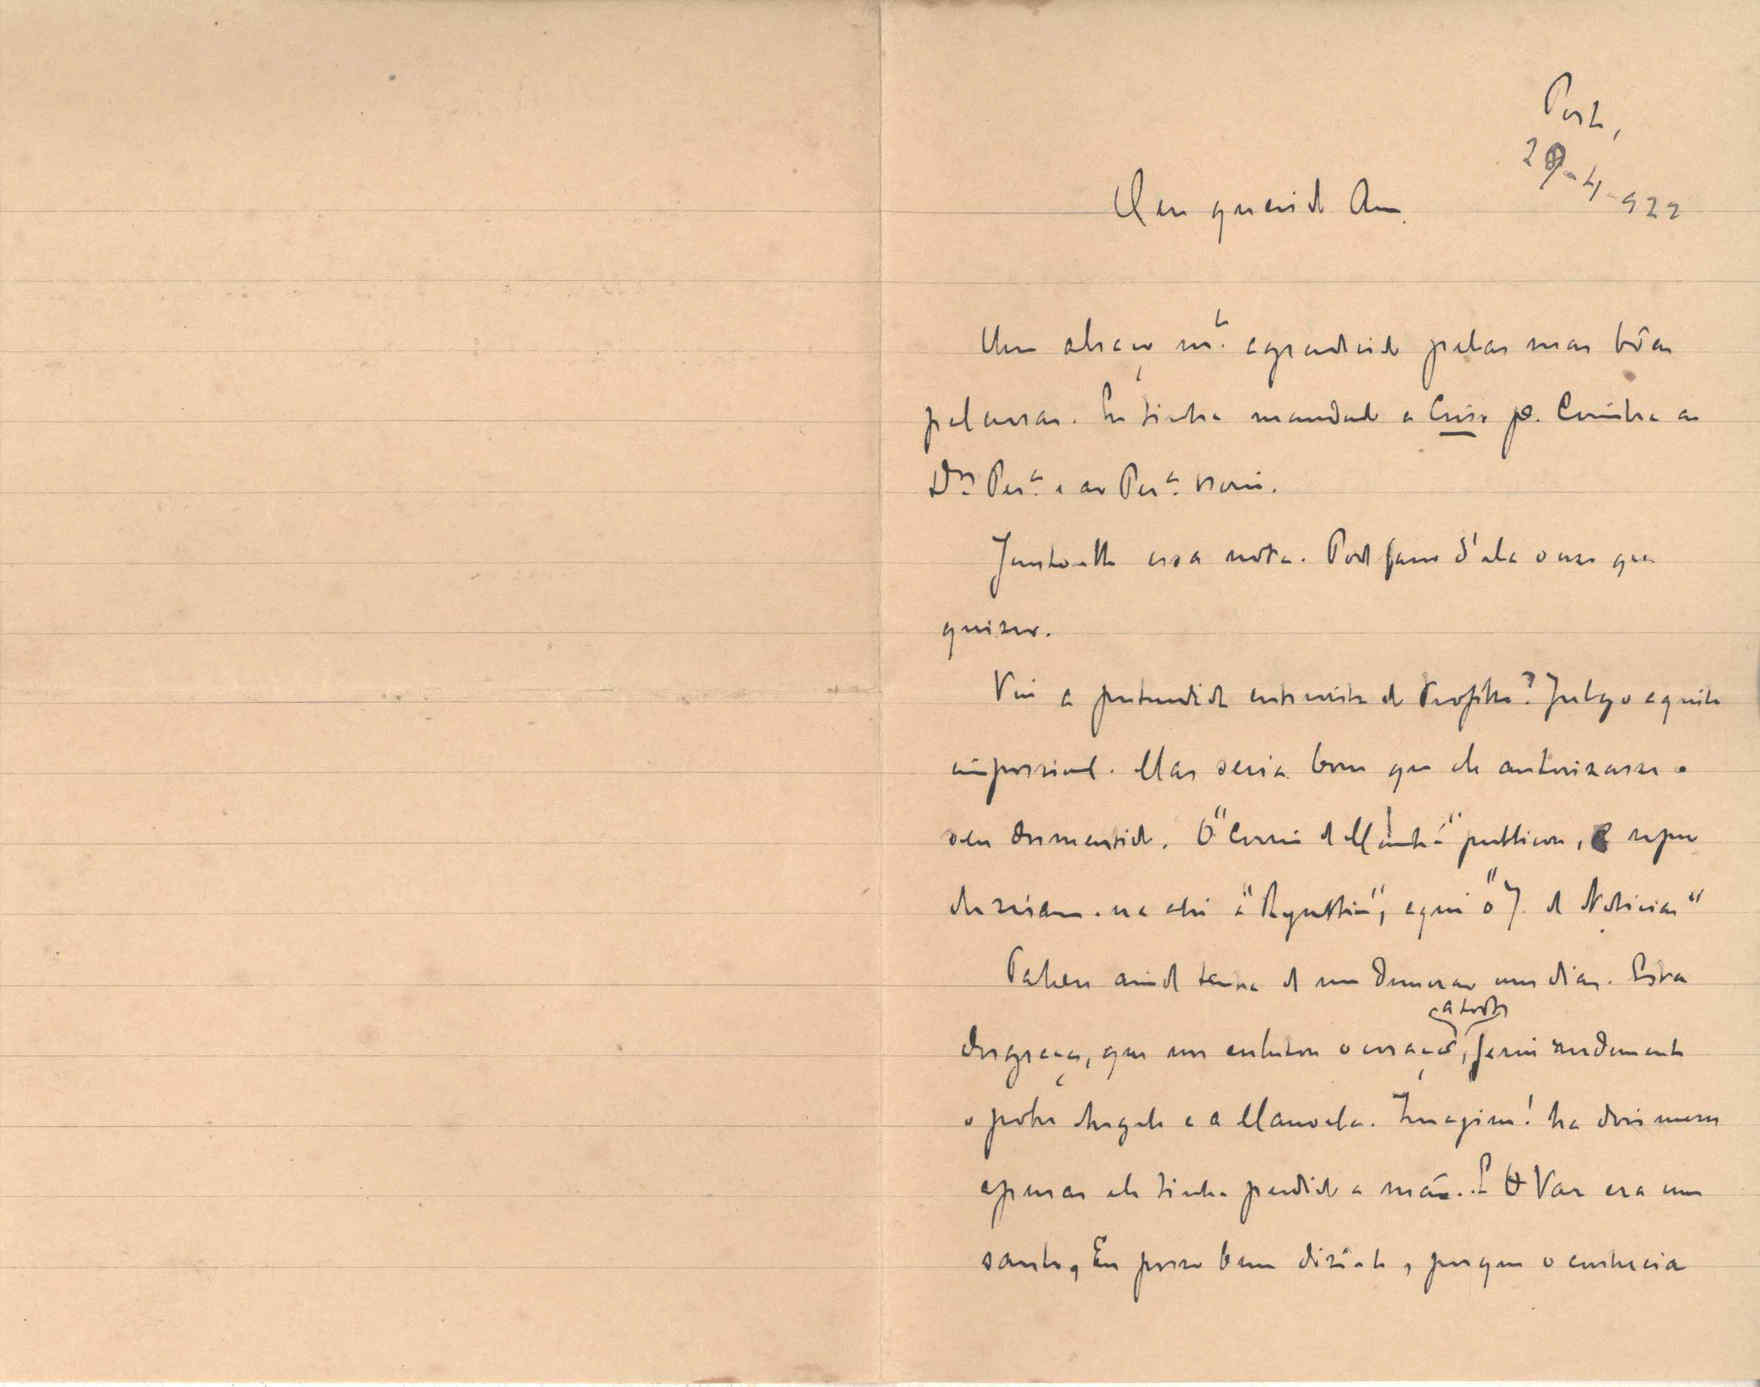 Porto,
29-4-922
Meu querido Am.
Um abraço m.to agradecido pelas suas bôas
palavras. Eu tinha mandado a Crise p.ª Coimbra ao
Dr. Per.ª e ao Per.ª
Junto-te essa nota. Pode fazer d'ela o uso que
quizer.
Viu a pretendida entrevista do Profeta? Julgo aquilo
impossivel. Mas seria bom que ele autorizasse o
seu desmentido. O "Correio da Manhã" publicou,
ahi "a", aqui "o J. de Noticias"
ainda de me demorar uns dias. Esta
desgraça, que nos enlutou o coração a todos, feriu rudemente
o pobre Angelo e a Manoela. Imagine! ha dois meses
apenas ele tinha perdido a mãe. E o Vaz era um
santo. Eu posso bem dizê-lo, porque o conhecia